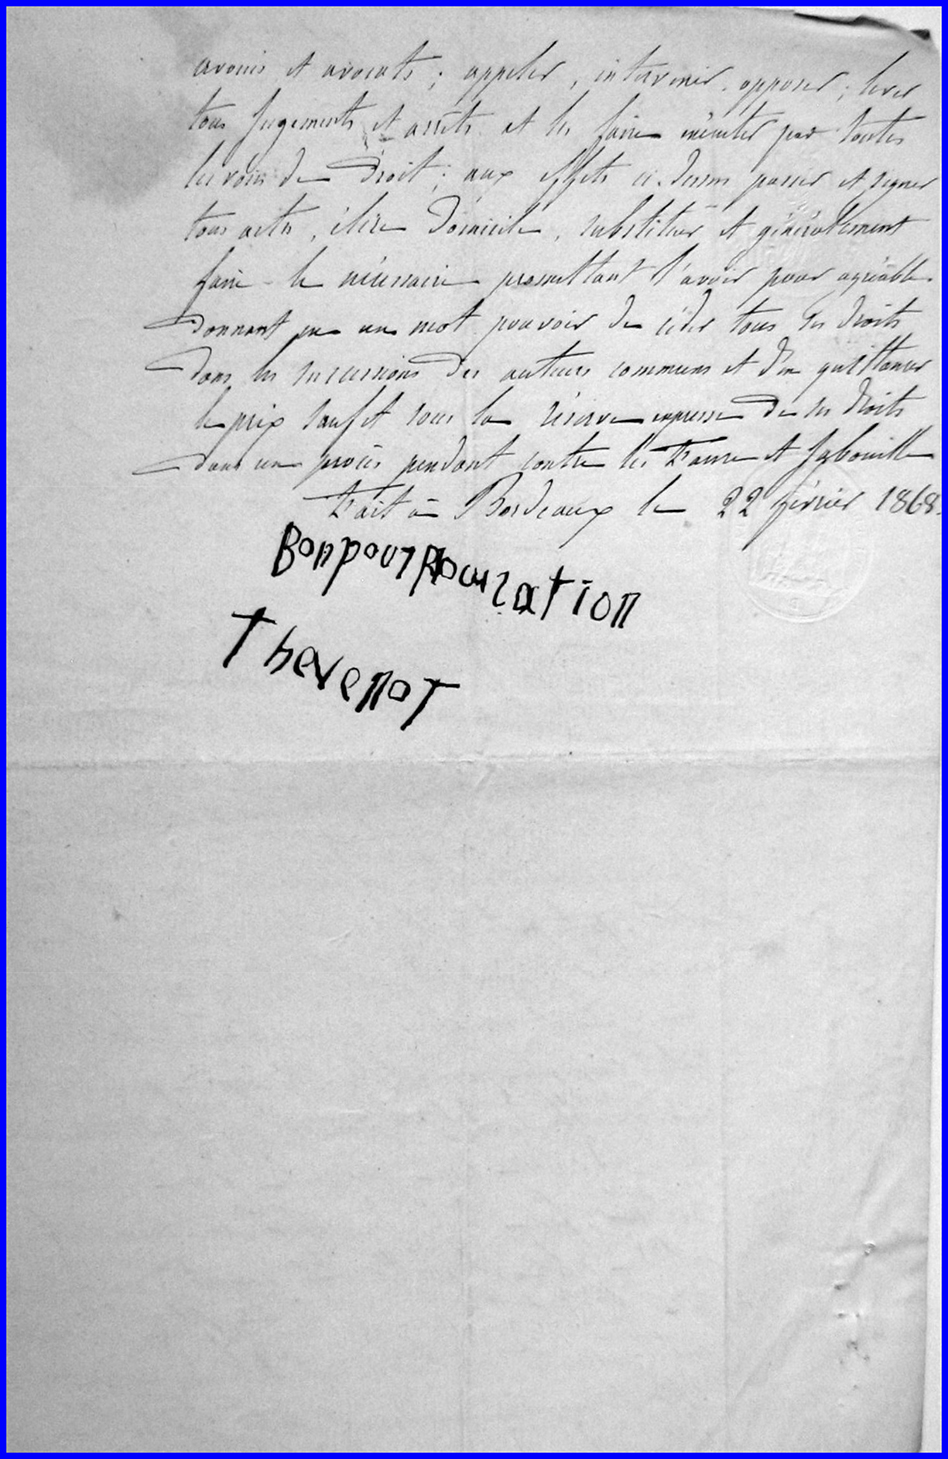 avoués et avocats ; appeler, intervenir, opposer ; lever
tous jugements et arrêts et les faire exécuter par toutes
les voies de Droit ; aux effets ci-dessus passer et signer
tous actes, élire Domicile, substituer et généralement
faire le nécessaire promettant l'avoir pour agréable
Donnant en un mot pouvoir de céder tous ses droits
Dans les successions des auteurs communs et d'en quittancer
le prix sauf et sous la réserve expresse De ses Droits
dans un procès pendant contre les Faure et
Fait à Bordeaux le 22 février 1868.
Bon pour
Thevenot